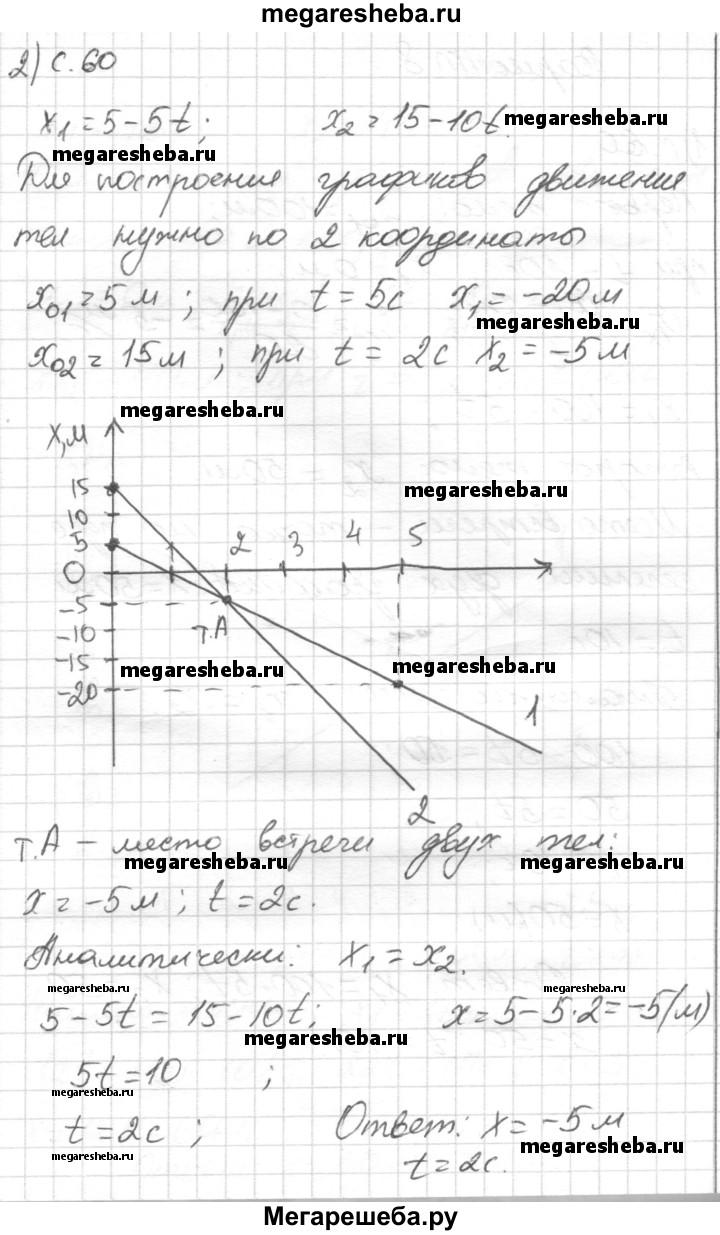 megaresheba.ru
2) с. 60
x₁ = 5 - 5t; x₂ = 15 - 10t. megaresheba.ru
megaresheba.ru
Для построения графиков движения
тел нужно по 2 координаты
x₀₁ = 5 м ; при t = 5с x₁ = -20м
megaresheba.ru
x₀₂ = 15м ; при t = 2с x₂ = -5м
megaresheba.ru
x,м
15
megaresheba.ru
10
5 2 3 4 5
0
-5
т.А
-10
-15
megaresheba.ru megaresheba.ru
-20
1
2
т.А - место встречи двух тел:
megaresheba.ru megaresheba.ru
x = -5м ; t = 2с.
Аналитически: x₁ = x₂.
megaresheba.ru megaresheba.ru
5 - 5t = 15 - 10t; x = 5 - 5·2 = -5(м)
megaresheba.ru
5t = 10 ;
megaresheba.ru
t = 2с ; Ответ: x = -5м
megaresheba.ru
megaresheba.ru t = 2с.
Мегарешеба.ру